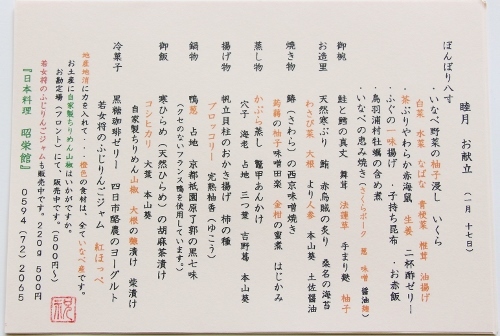 睦月 お献立 (一月 十七日)
ぼんぼり八寸
・いなべ野菜の柚子浸し いくら
白菜 水菜 なばな 青梗菜 椎茸 油揚げ
・茶ぶりやわらか赤海鼠 生姜 二杯酢ゼリー
・ふぐの一味揚げ ・子持ち昆布 ・お赤飯
・鳥羽浦村牡蠣の含め煮
・いなべの恵み焼き (さくらポーク 葱 味噌 醤油麹)
御椀 鮭と鱈の真丈 舞茸 法蓮草 手まり麩 柚子
お造里 天然寒ぶり 鮪 赤烏賊の炙り 桑名の海苔
わさび菜 大根 より人参 本山葵 土佐醤油
焼き物 鰆(さわら)の西京味噌焼き
蒟蒻の柚子味噌田楽 金柑の蜜煮 はじかみ
蒸し物 かぶら蒸し 鼈甲あんかけ
穴子 海老 占地 三つ葉 吉野葛 本山葵
揚げ物 帆立貝柱のおかき揚げ 柿の種
ブロッコリー 完熟柚香(ゆこう)
鍋物 鴨葱 占地 京都祇園原了郭の黒七味
(クセのないフランス鴨を使用しています。)
御飯 寒ひらめ(天然ひらめ)の胡麻茶漬け
コシヒカリ 大葉 本山葵
自家製ちりめん山椒 大根の糠漬け 柴漬け
冷菓子 黒糖珈琲ゼリー 四日市酪農のヨーグルト
若女将のふじりんごジャム 紅ほっぺ
地産地消に力を入れて・・橙色の食材は、全ていなべ産です。
お土産に自家製ちりめん山椒はいかがですか。
お勘定場(フロント)にて、販売中です。(500円~)
若女将のふじりんごジャムも販売中です。220g 500円
『日本料理 昭栄館』 0594(72)2065